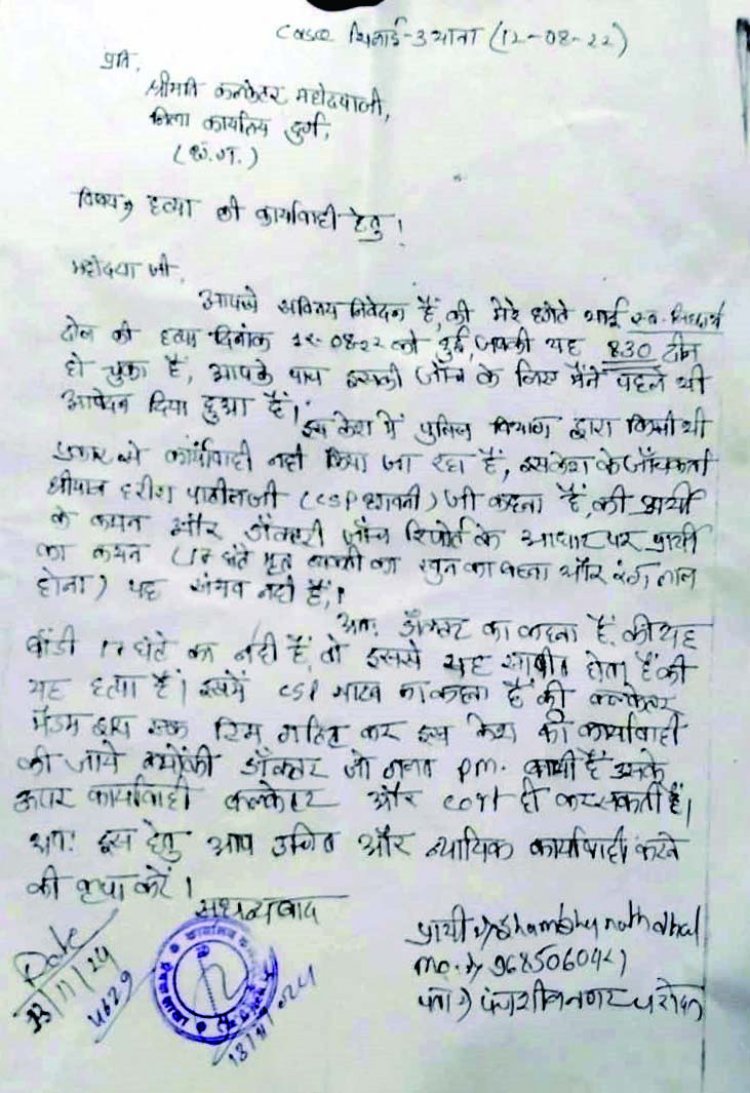 case रिकार्ड-उथाना (12-08-22)
प्रति,
श्रीमति कलेक्टर महोदयाजी,
जिला कार्यालय दुर्ग,
(छ.ग.)
विषय) हत्या की कार्यावाही हेतु!
महोदया जी,
आपसे सविनय निवेदन हैं, की मेरे छोटे भाई स्व. सिद्धार्थ
ढोल की हत्या दिनांक 12-08-22 को हुई, जिसकी यह 830 दीन
हो चुका है, आपके पास इसकी जाँच के लिए मैंने पहले भी
आवेदन दिया हुआ हैं।
इस केश में पुलिस विभाग द्वारा किसी भी
प्रकार से कार्यावाही नही किया जा रहा हैं, इस केश के जाँचकर्ता
श्रीमान हरीश पाटीलजी (CSP छावनी) जी कहना हैं, की प्रार्थी
के कथन और डॉक्टरी जाँच रिपोर्ट के आधार पर प्रार्थी
का कथन (17 घंटे मृत का खुन का बहना और रंग लाल
होना) यह संभव नही हैं,।
अतः डॉक्टर का कहना हैं, की यह
बॉडी 17 घंटे का नही हैं, तो इससे यह साबीत होता हैं की
यह हत्या हैं। इसमें CSP साहब का कहना हैं की कलेक्टर
मैडम द्वारा एक टिम गठित कर इस केश की कार्यावाही
की जाये क्योंकी डॉक्टर जो गलत pm. कार्य हैं उसके
ऊपर कार्यावाही कलेक्टर और cort ही कर सकती हैं।
अतः इस हेतु आप उचित और न्यायिक कार्यावाही करने
की कृपा करें।
सधन्यवाद
प्रार्थी) Shambhu nath dhal
mo.
पता) पंचशील नगर चरोदा
Date
13/11/24
4629
13/11/24